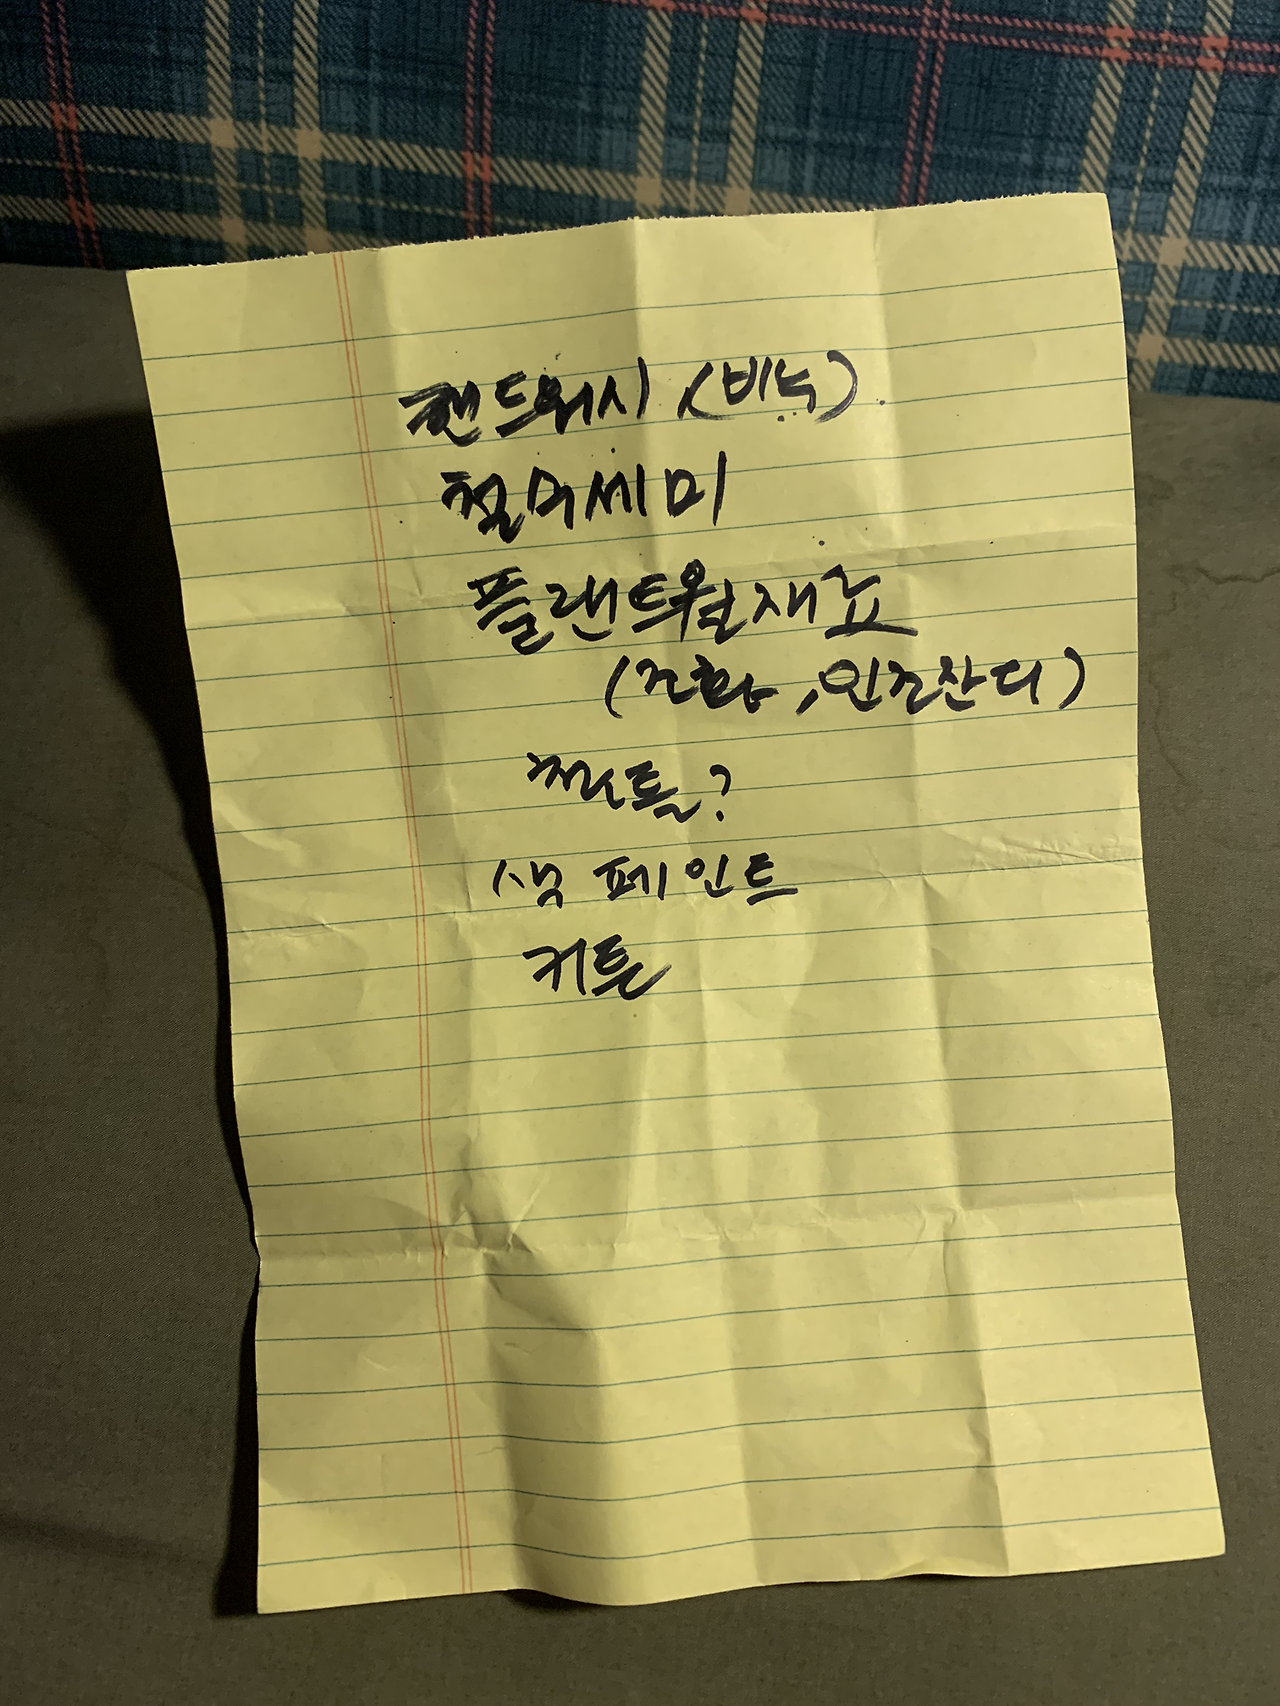 핸드워시 (비누)
철수세미
플랜트월재료
(조화, 인조잔디)
색 페인트
커튼